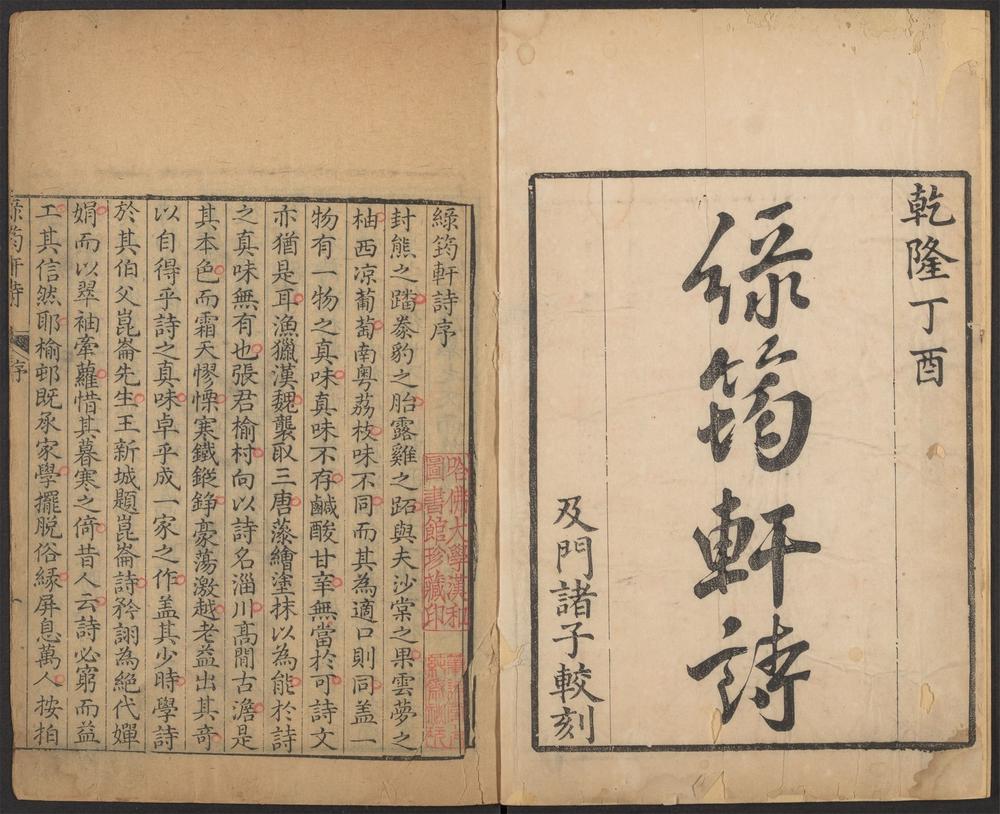 乾隆丁酉
綠筠軒詩
及門諸子較刻
綠筠軒詩序
封熊之蹯豢豹之胎露雞之跖與夫沙棠之果雲夢之
柚西凉葡萄南粤荔枝味不同而其為適口則同盖一
物有一物之真味真味不存鹹酸甘辛無當於可詩文
亦猶是耳漁獵漢魏襲取三唐藻繪塗抹以為能於詩
之真味無有也張君榆村向以詩名淄川髙閒古澹是
其本色而霜天憀慄寒鐵鏦錚豪蕩激越老益出其竒
以自得乎詩之真味卓乎成一家之作盖其少時學詩
於其伯父崑崙先生王新城題崑崙詩矜詡為絶代嬋
娟而以翠袖牽蘿惜其暮寒之倚昔人云詩必窮而益
工其信然耶榆邨既承家學擺脱俗緣屏息萬人按拍
綠筠軒詩
序
哈佛大學漢和
圖書館珍藏印